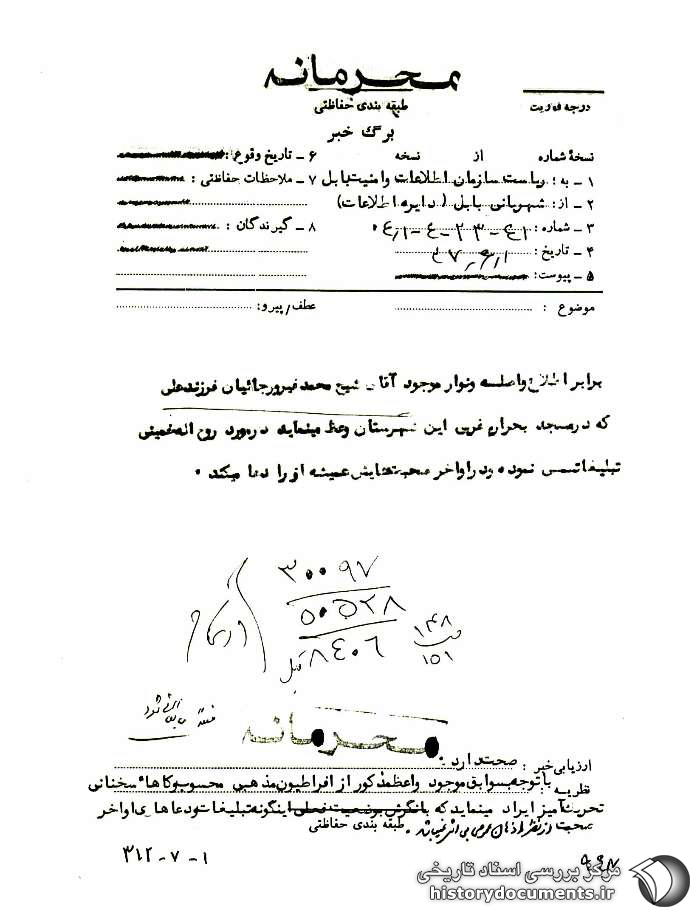 محرمانه
طبقه بندی حفاظتی
درجه فوریت
برگ خبر
نسخهٔ شماره از نسخه
۱ - به: ریاست سازمان اطلاعات وامنیت بابل
۲ - از: شهربانی بابل ( دایره اطلاعات)
۳ - شماره:
۴ - تاریخ:
۵ - پیوست:
۶ - تاریخ وقوع:
۷ - ملاحظات حفاظتی:
۸ - گیرندگان:
موضوع :
عطف/پیرو:
برابر اطلاع واصله ونوار موجود آقای شیخ محمد فیروزجائیان فرزند علی
که درمسجد بحرارم غربی این شهرستان وعظ مینماید درمورد روح اله خمینی
تبلیغات سمی نموده ودراواخر صحبتهایش همیشه اورا دعا میکند .
۳۰۰۹۷
۵۰۵۲۸
۸۴۰۶
۱۴۸
۱۵۱
محرمانه
ارزیابی خبر : صحت دارد .
نظریه : باتوجه بسوابق موجود واعظ مذکور از افراطیون مذهبی محسوب وگاها" سخنانی
تحریک آمیز ایراد مینماید که بانگرش بوضعیت فعلی اینگونه تبلیغات ودعاهای اواخر
صحبت از نظر اذهان عمومی بی اثر نمیباشد .
طبقه بندی حفاظتی
۳۱۲-۷-۱
مرکز بررسی اسناد تاریخی
historydocuments.ir